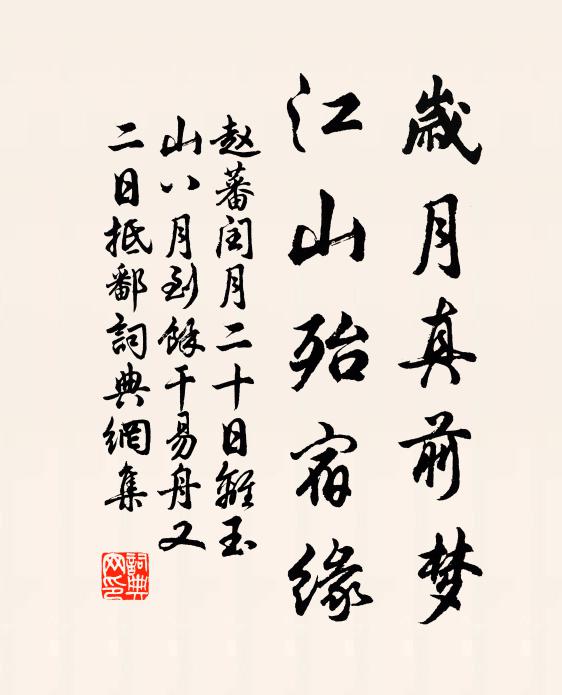 歲月真前梦
江山殆宿緣
赵蕃閏月二十日離玉
山八月到餘干易舟又
二日抵鄱詞典網集
詞典
网印